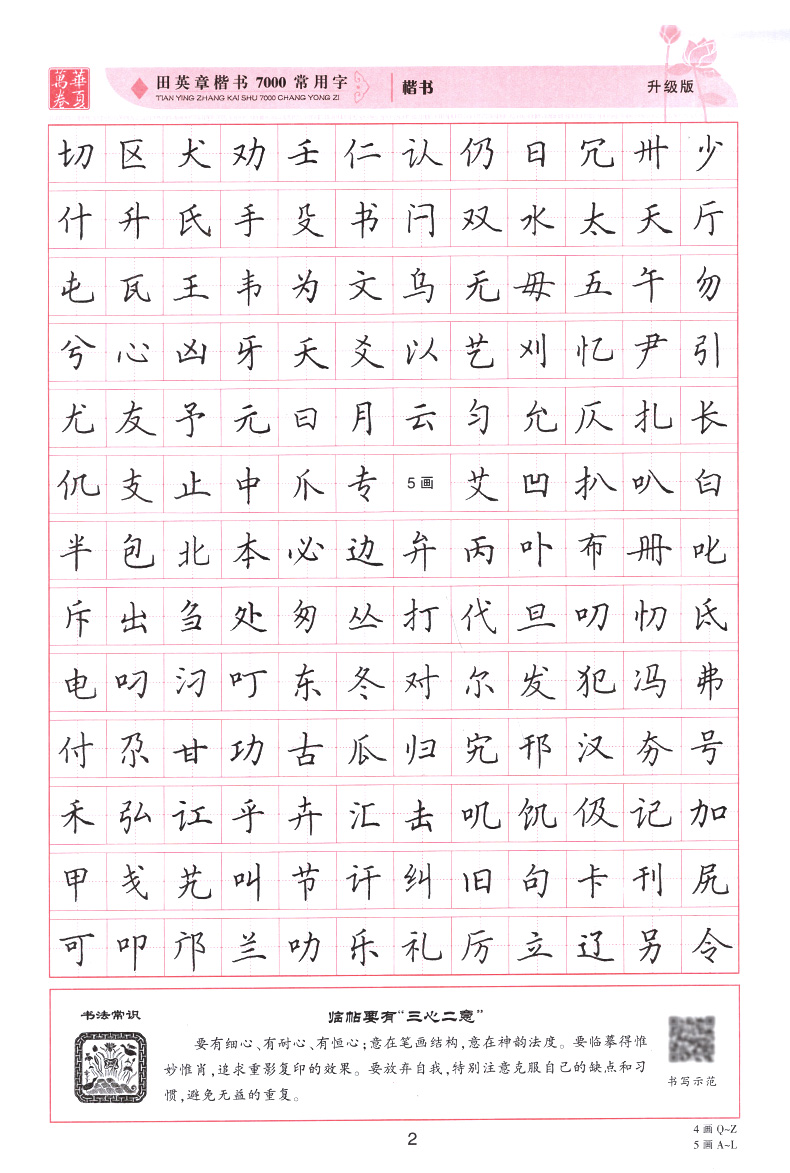 華夏萬卷
田英章楷书 7000 常用字
TIAN YING ZHANG KAI SHU 7000 CHANG YONG ZI
楷书
升级版
切区犬劝壬仁认仍日冗卅少
什升氏手殳书闩双水太天厅
屯瓦王韦为文乌无毋五午勿
兮心凶牙夭爻以艺刈忆尹引
尤友予元曰月云匀允仄扎长
仉支止中爪专 5画 艾凹扒叭白
半包北本必边弁丙卟布册叱
斥出刍处匆丛打代旦叨忉氐
电叼汈叮东冬对尔发犯冯弗
付尕甘功古瓜归宄邗汉夯号
禾弘讧乎卉汇击叽饥伋记加
甲戋艽叫节讦纠旧句卡刊尻
可叩邝兰叻乐礼厉立辽另令
书法常识
临帖要有“三心二意”
要有细心、有耐心、有恒心;意在笔画结构,意在神韵法度。要临摹得惟
妙惟肖,追求重影复印的效果。要放弃自我,特别注意克服自己的缺点和习
惯,避免无益的重复。
书写示范
2
4 画 Q~Z
5 画 A~L